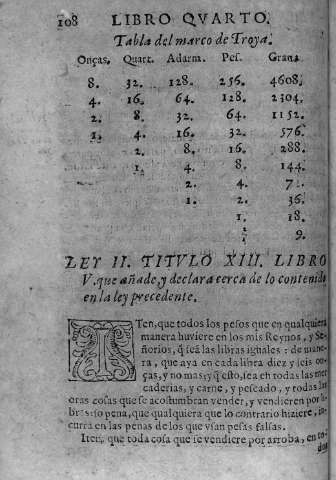 108 LIBRO QVARTO.
Tabla del marco de Troya.
Onças. Quart. Adarm. Pes. Grana
8. 32. 128. 256. 4608.
4. 16. 64. 128. 2304.
2. 8. 32. 64. 1152.
1. 4. 16. 32. 576.
2. 8. 16. 288.
1. 4. 8. 144.
2. 4. 72.
1. 2. 36.
1. 18.
1/2 9.
LEY II. TITVLO XIII. LIBRO
V. que añade, y declara cerca de lo contenido
en la ley precedente.
ITen, que todos los pesos que en qualquiera
manera huviere en los mis Reynos, y Se-
ñorios, q̃ seã las libras iguales: de mane-
ra, que aya en cada libra diez y seis on-
ças, y no mas; y q̃ esto, sea en todas las mer
caderias, y carne, y pescado, y todas las
otras cosas que se acostumbran vender, y vendieren por li-
bras: so pena, que qualquiera que lo contrario hiziere, in-
curra en las penas de los que vsan pesas falsas.
Iten, que toda cosa que se vendiere por arroba, en to-